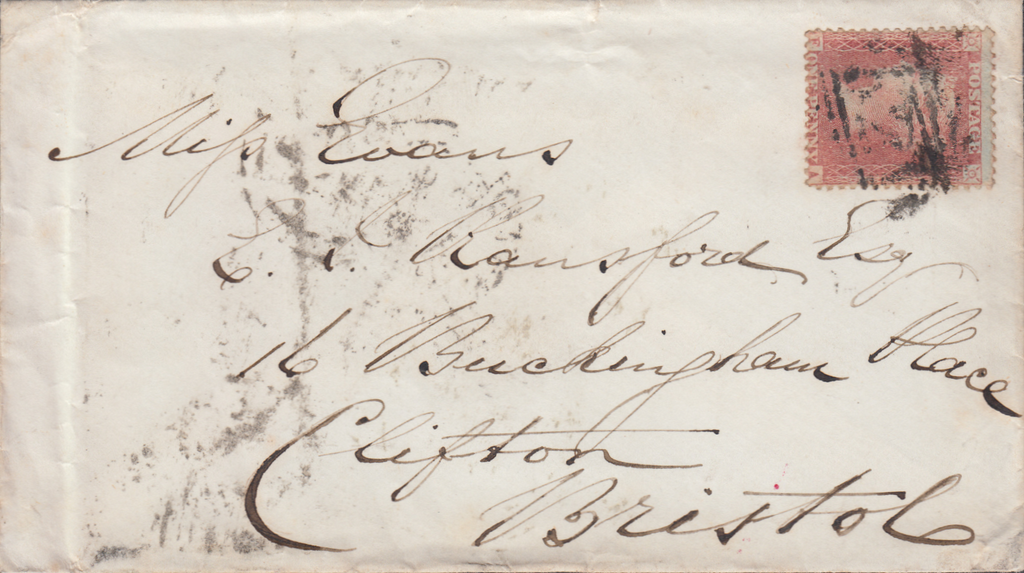 Miss Evans
Ransford Esq
16 Buckingham Place
Clifton
Bristol
POSTAGE